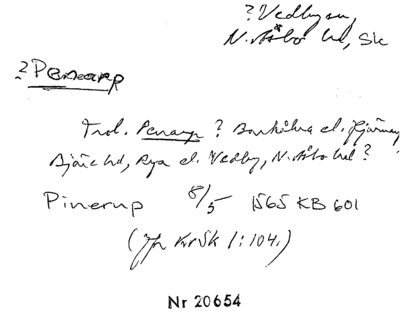 ? Vedbysn,
N. Åsbo hd, Sk
? Penarp
Trol. Penarp ? Barkåkra el. Hjärnarp
Bjäre hd, Rya el. Vedby, N. Åsbo hd ?
Pinerup 8/5 1565 KB 601
(Jfr KrSk 1:104.)
Nr 20654